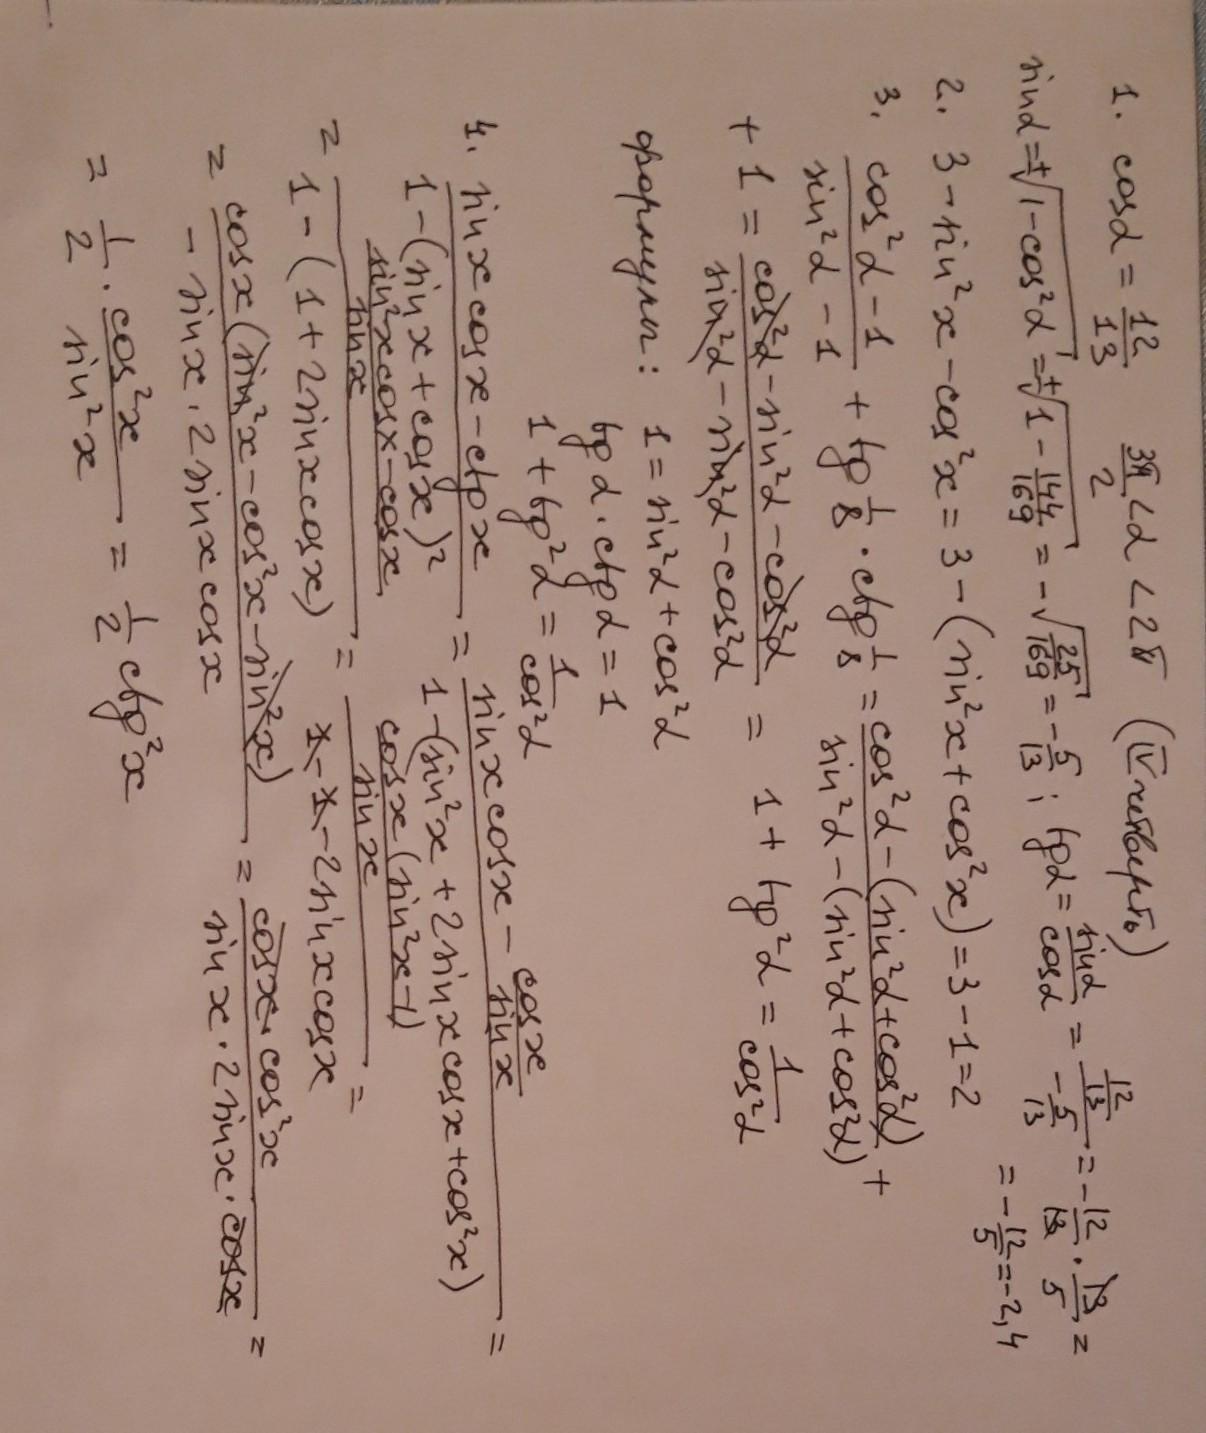 1. cosα = 12/13   3π/2 < α < 2π (IV четверть)
sinα = ±√(1 - cos²α) = ±√(1 - 144/169) = -√(25/169) = -5/13; tgα = sinα/cosα = (12/13)/(-5/13) = -12/13 · 13/5 =
= -12/5 = -2,4
2. 3 - sin²x - cos²x = 3 - (sin²x + cos²x) = 3 - 1 = 2
3. (cos²α - 1)/(sin²α - 1) + tg 1/8 · ctg 1/8 = (cos²α - (sin²α + cos²α))/(sin²α - (sin²α + cos²α)) +
+ 1 = (cos²α - sin²α - cos²α)/(sin²α - sin²α - cos²α) = 1 + tg²α = 1/cos²α
формулы: 1 = sin²α + cos²α
tgα · ctgα = 1
1 + tg²α = 1/cos²α
4. (sinx cosx - ctgx)/(1 - (sinx + cosx)²) = (sinx cosx - cosx/sinx)/(1 - (sin²x + 2sinx cosx + cos²x)) =
= ((sin²x cosx - cosx)/sinx)/(1 - (1 + 2sinx cosx)) = ((cosx (sin²x - 1))/sinx)/(1 - 1 - 2sinx cosx) =
= (cosx (sin²x - cos²x - sin²x))/(- sinx · 2sinx cosx) = (cosx · cos²x)/(sinx · 2sinx · cosx) =
= 1/2 · cos²x/sin²x = 1/2 ctg²x